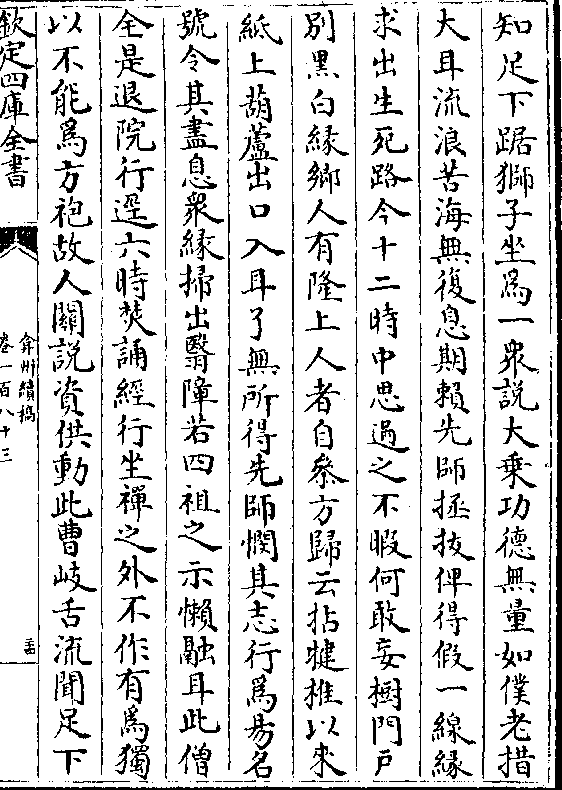 知足下踞獅子坐爲一衆説大乗功德無量如僕老措
大耳流浪苦海無復息期賴先師拯抜俾得假一線緣
求出生死路今十二時中思過之不暇何敢妄樹門戸
别黒白緣鄉人有隆上人者自叅方歸云拈犍椎以來
紙上葫蘆出口入耳了無所得先師憫其志行爲易名
號令其盡息衆緣掃出翳障若四祖之示懶融耳此僧
全是退院行逕六時焚誦經行坐禪之外不作有爲獨
以不能爲方袍故人關説資供動此曹岐舌流聞足下
欽定四庫全書
弇州續稿
卷一百八十三